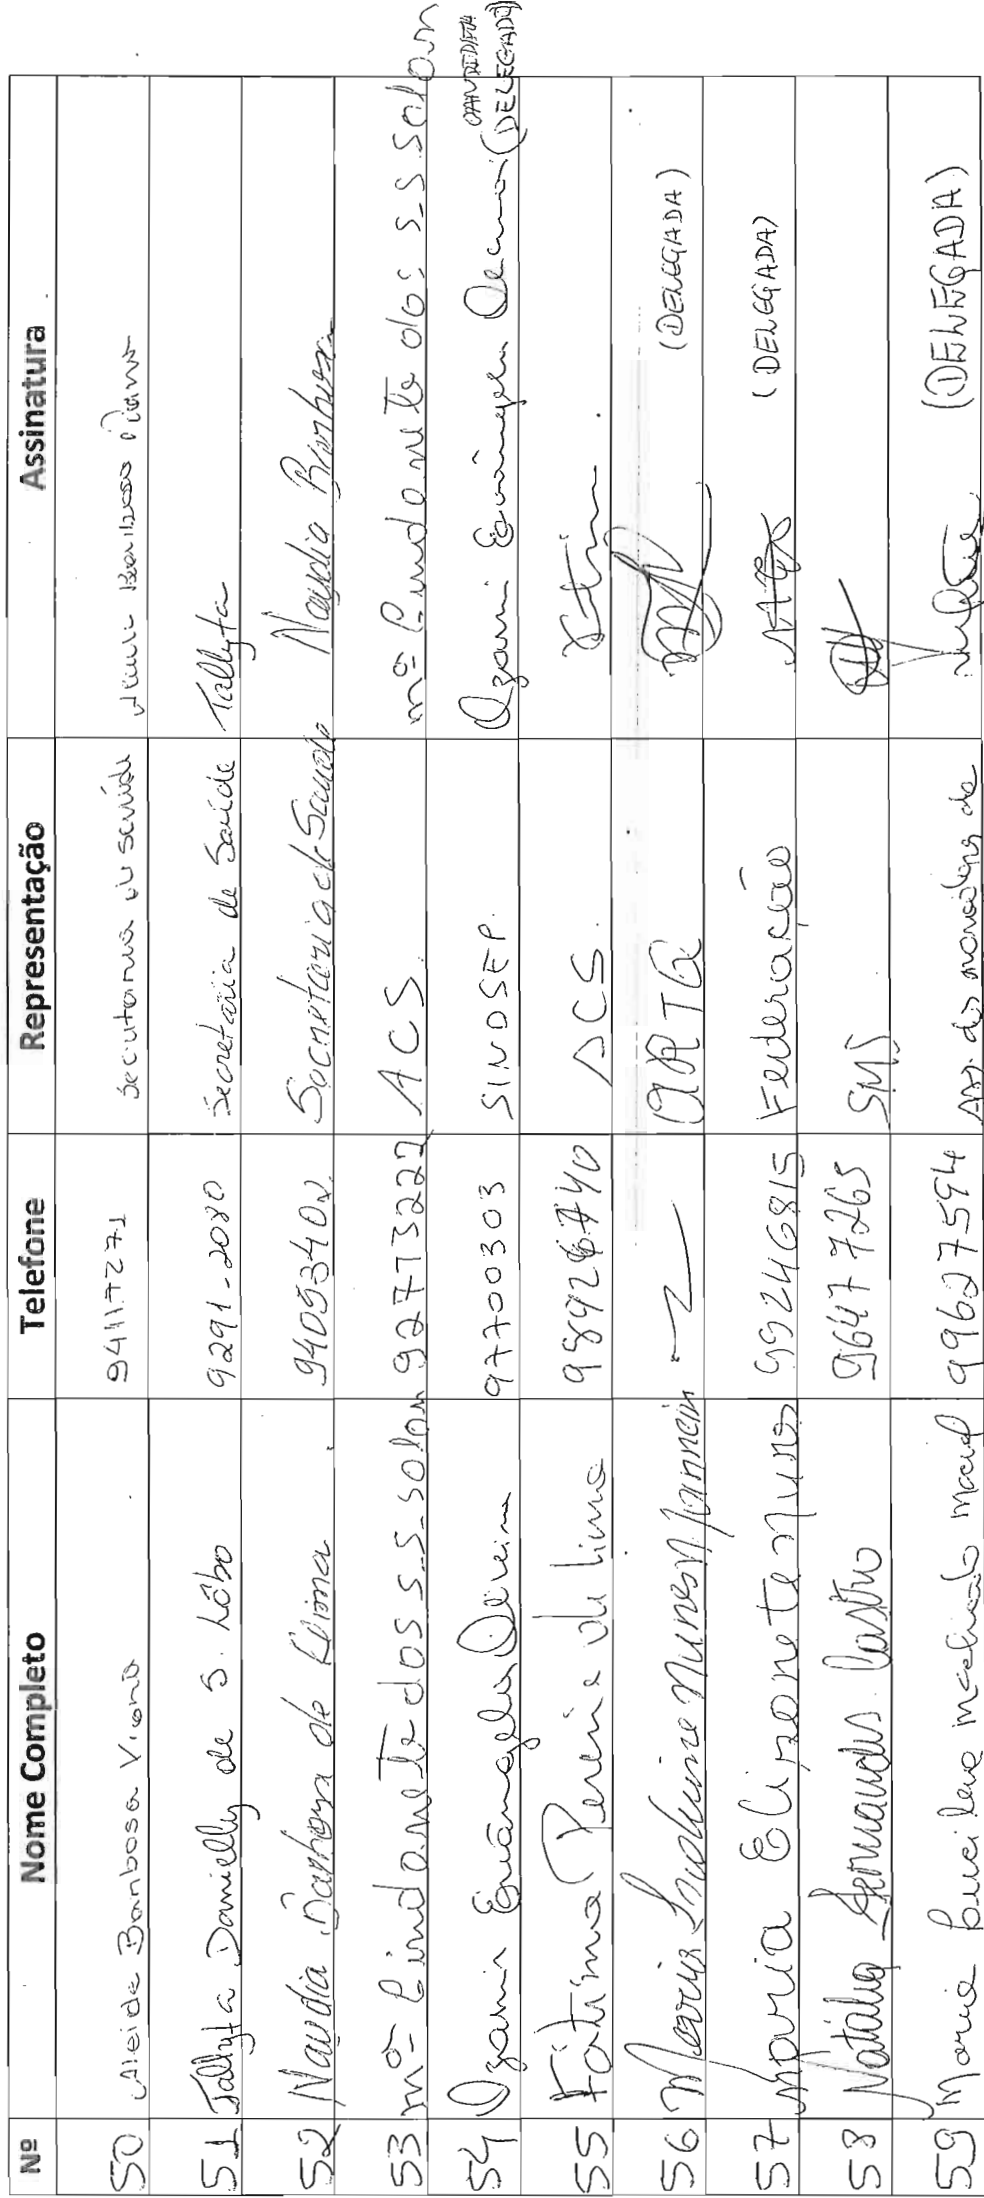 Nº Nome Completo Telefone Representação Assinatura
50 Aleide Barbosa Viana 94117271 Secretaria de saúde Aleide Barbosa Viana
51 Tallyta Danielly de S. Lôbo 9291-2080 Secretária de Saúde Tallyta
52 Naydia Barboza de Lima 94053402 Secretaria de Saude Naydia Barboza
53 mª Lindonete dos S.S. Solon 92773222 ACS. mª Lindonete dos S.S. Solon
54 Ozani Evangelu 97700303 SINDSEP. Ozani CANDIDATA (DELEGADO)
55 Fátima Pereira de Lima 98926740 ACS. Fátima
56 Maria Nunes (DELEGADA)
57 Maria Elizonete Nunes 99246815 Federação (DELEGADA)
58 Natália Fernandes Castro 96477265 SMS
59 Maria Lucilene machado maciel 99627594 Ass. dos moradores de (DELEGADA)